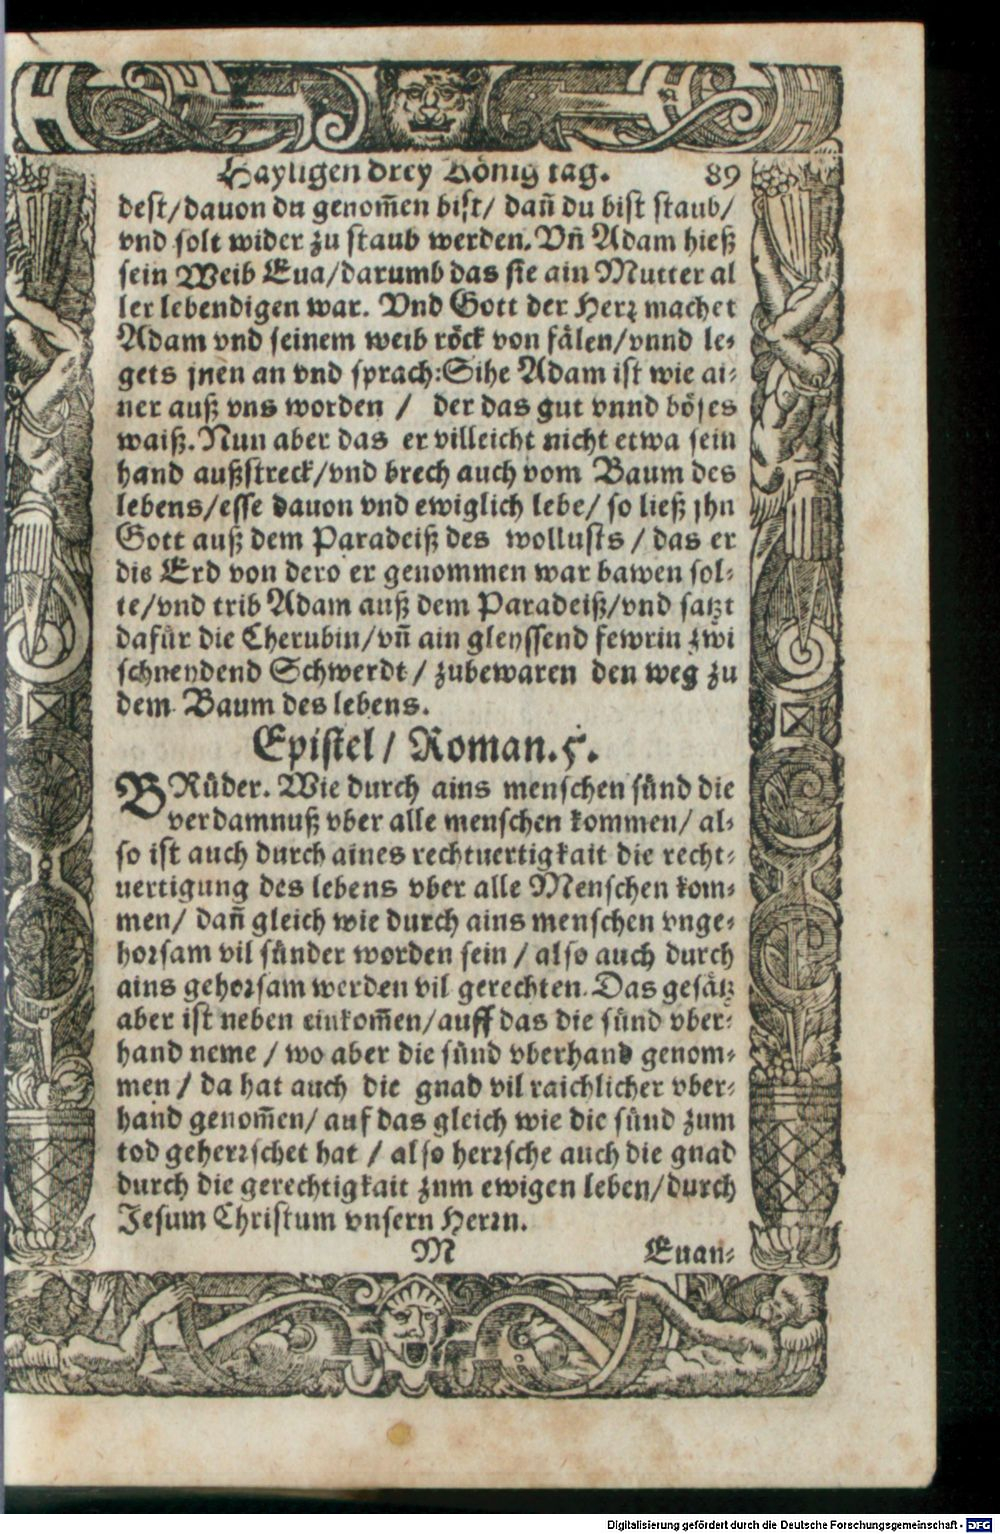 Hayligen drey König tag. 89
dest/dauon du genom̄en bist/ dañ du bist staub/
vnd solt wider zu staub werden. Vñ Adam hieß
sein Weib Eua/darumb das sie ain Mutter al
ler lebendigen war. Vnd Gott der Herꝛ machet
Adam vnd seinem weib röck von fälen/vnnd le⸗
gets jnen an vnd sprach: Sihe Adam ist wie ai⸗
ner auß vns worden / der das gut vnnd böses
waiß. Nun aber das er villeicht nicht etwa sein
hand außstreck/vnd brech auch vom Baum des
lebens/esse dauon vnd ewiglich lebe/ so ließ jhn
Gott auß dem Paradeiß des wollusts / das er
die Erd von dero er genommen war bawen sol⸗
te/vnd trib Adam auß dem Paradeiß/vnd satzt
dafür die Cherubin/vñ ain gleyssend fewrin zwi
schneydend Schwerdt / zubewaren den weg zu
dem Baum des lebens.
Epistel / Roman. 5.
BRüder. Wie durch ains menschen sünd die
verdamnuß vber alle menschen kommen/ al⸗
so ist auch durch aines rechtuertigkait die recht⸗
uertigung des lebens vber alle Menschen kom⸗
men/ dañ gleich wie durch ains menschen vnge⸗
hoꝛsam vil sünder worden sein / also auch durch
ains gehoꝛsam werden vil gerechten. Das gesätz
aber ist neben einkom̄en/auff das die sünd vber⸗
hand neme / wo aber die sünd vberhand genom⸗
men / da hat auch die gnad vil raichlicher vber⸗
hand genom̄en/ auf das gleich wie die sünd zum
tod geherꝛschet hat / also herꝛsche auch die gnad
durch die gerechtigkait zum ewigen leben/durch
Jesum Christum vnsern Herꝛn.
M Euan⸗
Digitalisierung gefördert durch die Deutsche Forschungsgemeinschaft - DFG